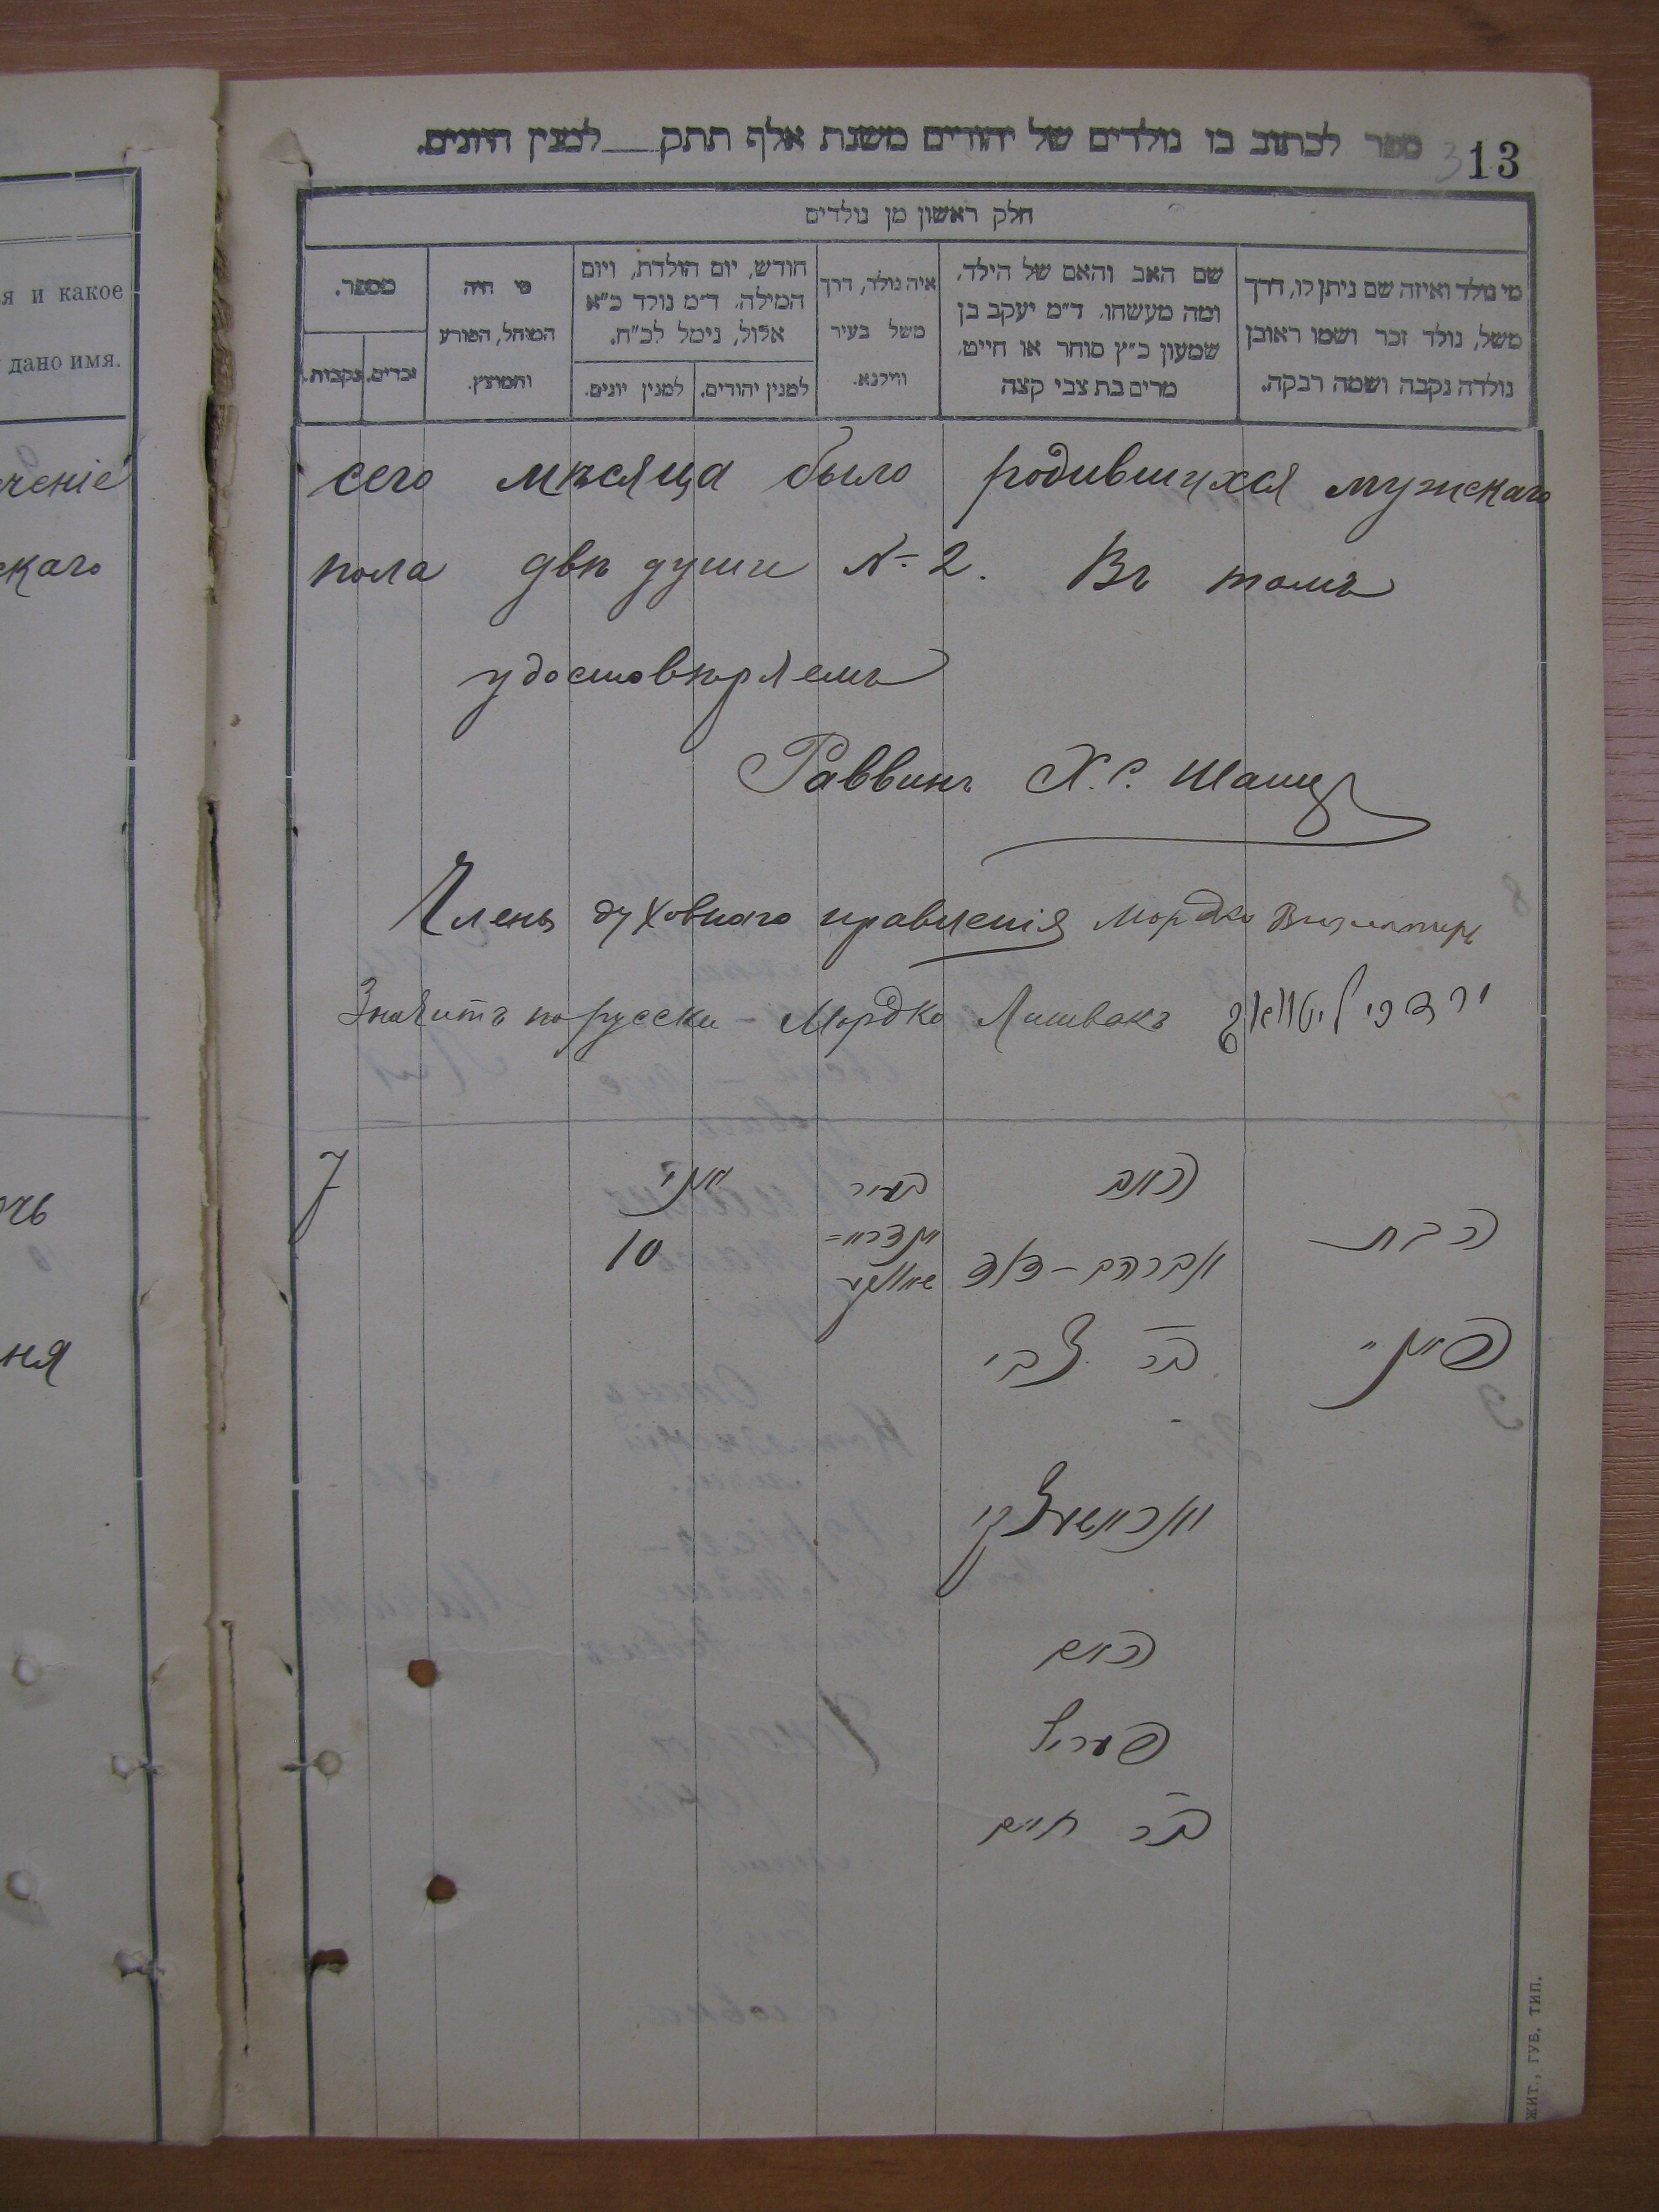 ספר לכתוב בו נולדים של יהודים משנת אלף תתק למנין היונים.
13
חלק ראשון מן נולדים
מי נולד ואיזה שם ניתן לו, דרך
משל, נולד זכר ושמו ראובן
נולדה נקבה ושמה רבקה.
שם האב והאם של הילד,
ומה מעשהו. ד״מ יעקב בן
שמעון כ״ץ סוחר או חייט.
מרים בת צבי קצה
איה נולד, דרך
משל בעיר
ווילנא.
חודש, יום הולדת, ויום
המילה. ד״מ נולד כ״א
אלול, נימל לכ״ח.
למנין יהודים.
למנין יונים.
מי היה
המוהל, הפורע
והמוצץ.
מספר.
זכרים.
נקבות.
я и какое
дано имя.
чение
скаго
сего мѣсяца было родившихся мужскаго
пола двѣ души № 2. Въ томъ
удостовѣряемъ
Раввинъ Х. С.
Членъ духовнаго правленія Мордко
Значитъ по русски - Мордко Литвакъ
7
הבת
האב
אברהם - דוד
בר צבי
האם
פעריל
בר חיים
בעיר
יוני
10
очь
ня
ЖИТ., ГУБ. ТИП.